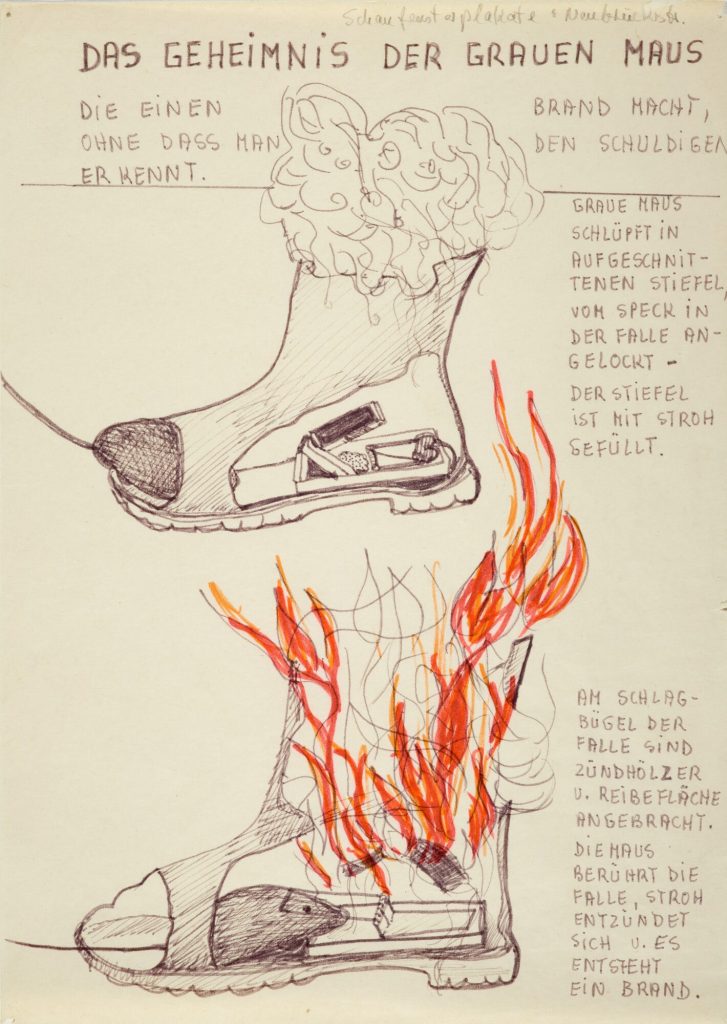 Schaufensterplakate
DAS GEHEIMNIS DER GRAUEN MAUS
DIE EINEN BRAND MACHT,
OHNE DASS MAN DEN SCHULDIGEN
ERKENNT.
GRAUE MAUS
SCHLÜPFT IN
AUFGESCHNIT-
TENEN STIEFEL,
VOM SPECK IN
DER FALLE AN-
GELOCKT –
DER STIEFEL
IST MIT STROH
GEFÜLLT.
AM SCHLAG-
BÜGEL DER
FALLE SIND
ZÜNDHÖLZER
U. REIBEFLÄCHE
ANGEBRACHT.
DIE MAUS
BERÜHRT DIE
FALLE, STROH
ENTZÜNDET
SICH U. ES
ENTSTEHT
EIN BRAND.